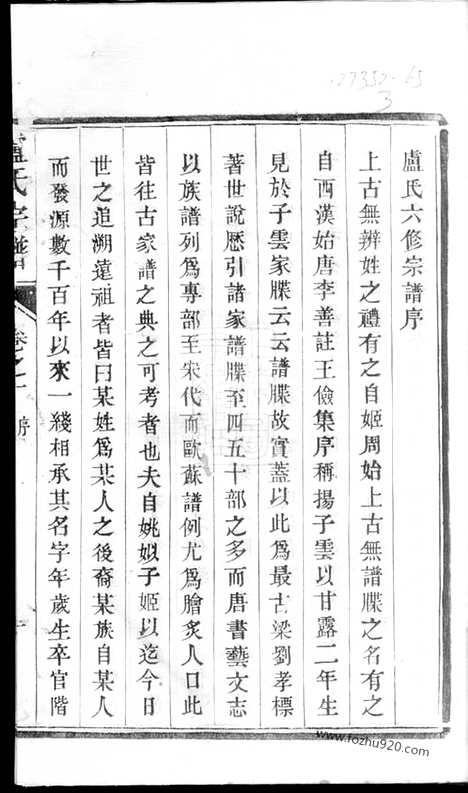 27352-65
3
盧氏六修宗譜序
上古無辨姓之禮有之自姬周始上古無譜牒之名有之
自西漢始唐李善註王儉集序稱揚子雲以甘露二年生
見於子雲家牒云云譜牒故實蓋以此為最古梁劉孝標
著世說歷引諸家譜牒至四五十部之多而唐書藝文志
以族譜列為專部至宋代而歐蘇譜例尤為膾炙人口此
皆往古家譜之典之可考者也夫自姚姒子姬以迄今日
世之追溯遠祖者皆曰某姓為某人之後裔某族自某人
而發源數千百年以來一綫相承其名字年歲生卒官階
盧氏宗譜
卷之一
序
一
www.fozhu920.com